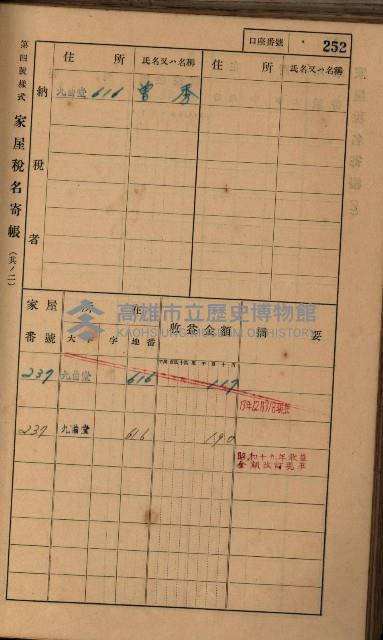 口座番號 252
第四號様式 家屋税名寄帳(其ノ二)
納税者
住所 氏名又ハ名稱 住所 氏名又ハ名稱
九曲堂 616 曾秀
家屋番號 所在 收益金額 摘要
大字 字 地番
237 九曲堂 616 117
237 九曲堂 616 190
昭和十九年收益
金額改訂
高雄市立歷史博物館
KAOHSIUNG MUSEUM OF HISTORY